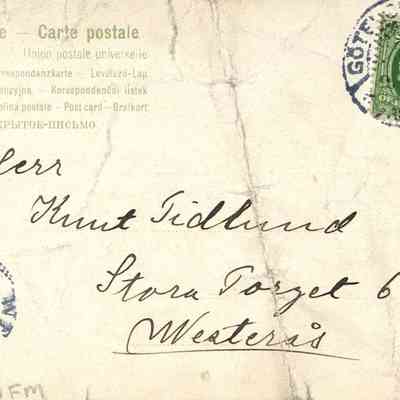 e – Carte postale
Union postale universelle
orrespondanzkarte – Levelező-Lap
– Korespondenční lístek
olina postale – Post card – Brefkort
КРЫТОЕ-ПИСЬМО
GÖTE
Herr
Knut Tidlund
Stora Torget 6
Westerås
FM